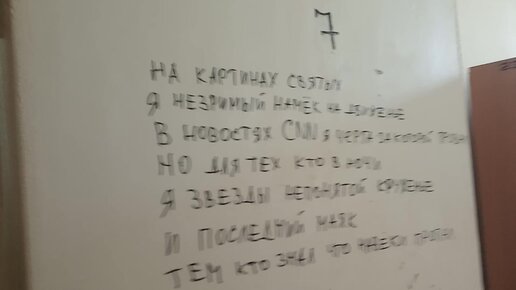 7
НА КАРТИНАХ СВЯТЫХ
Я НЕЗРИМЫЙ НАМЁК НА ДВИЖЕНЬЕ
В НОВОСТЯХ CNN Я ЧЕРТА ЗА КОТОРОЙ
НО ДЛЯ ТЕХ КТО В НОЧИ
Я ЗВЕЗДЫ НЕПОНЯТОЙ КРУЖЕНЬЕ
И ПОСЛЕДНИЙ МАЯК
ТЕМ КТО ЗНАЛ ЧТО